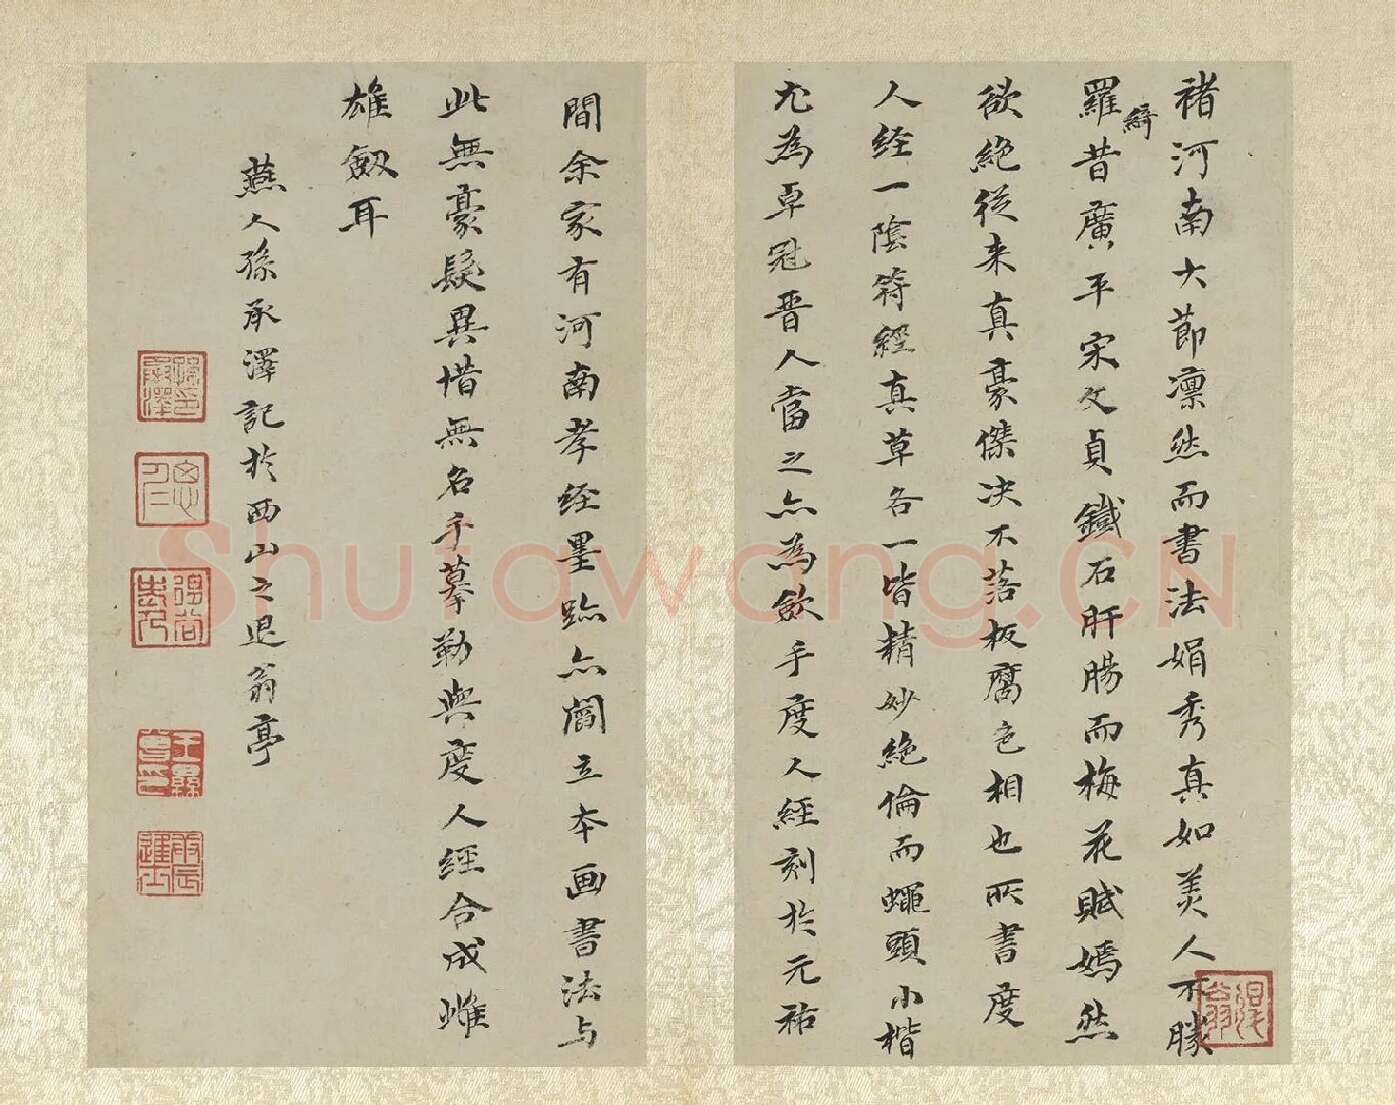 褚河南大節凛然而書法娟秀真如美人不勝
羅綺昔廣平宋文貞鐵石肝腸而梅花賦嫣然
欲絶從来真豪傑决不落板腐色相也所書度
人経一陰符經真草各一皆精妙絶倫而蠅頭小楷
尤為卓冠晋人當之亦為斂手度人經刻於元祐
間余家有河南孝经墨跡亦閻立本画書法与
此無豪髮異惜無名手摹勒與度人經合成雌
雄劔耳
燕人孫承澤記於西山之退翁亭
退翁
Shufawang.CN